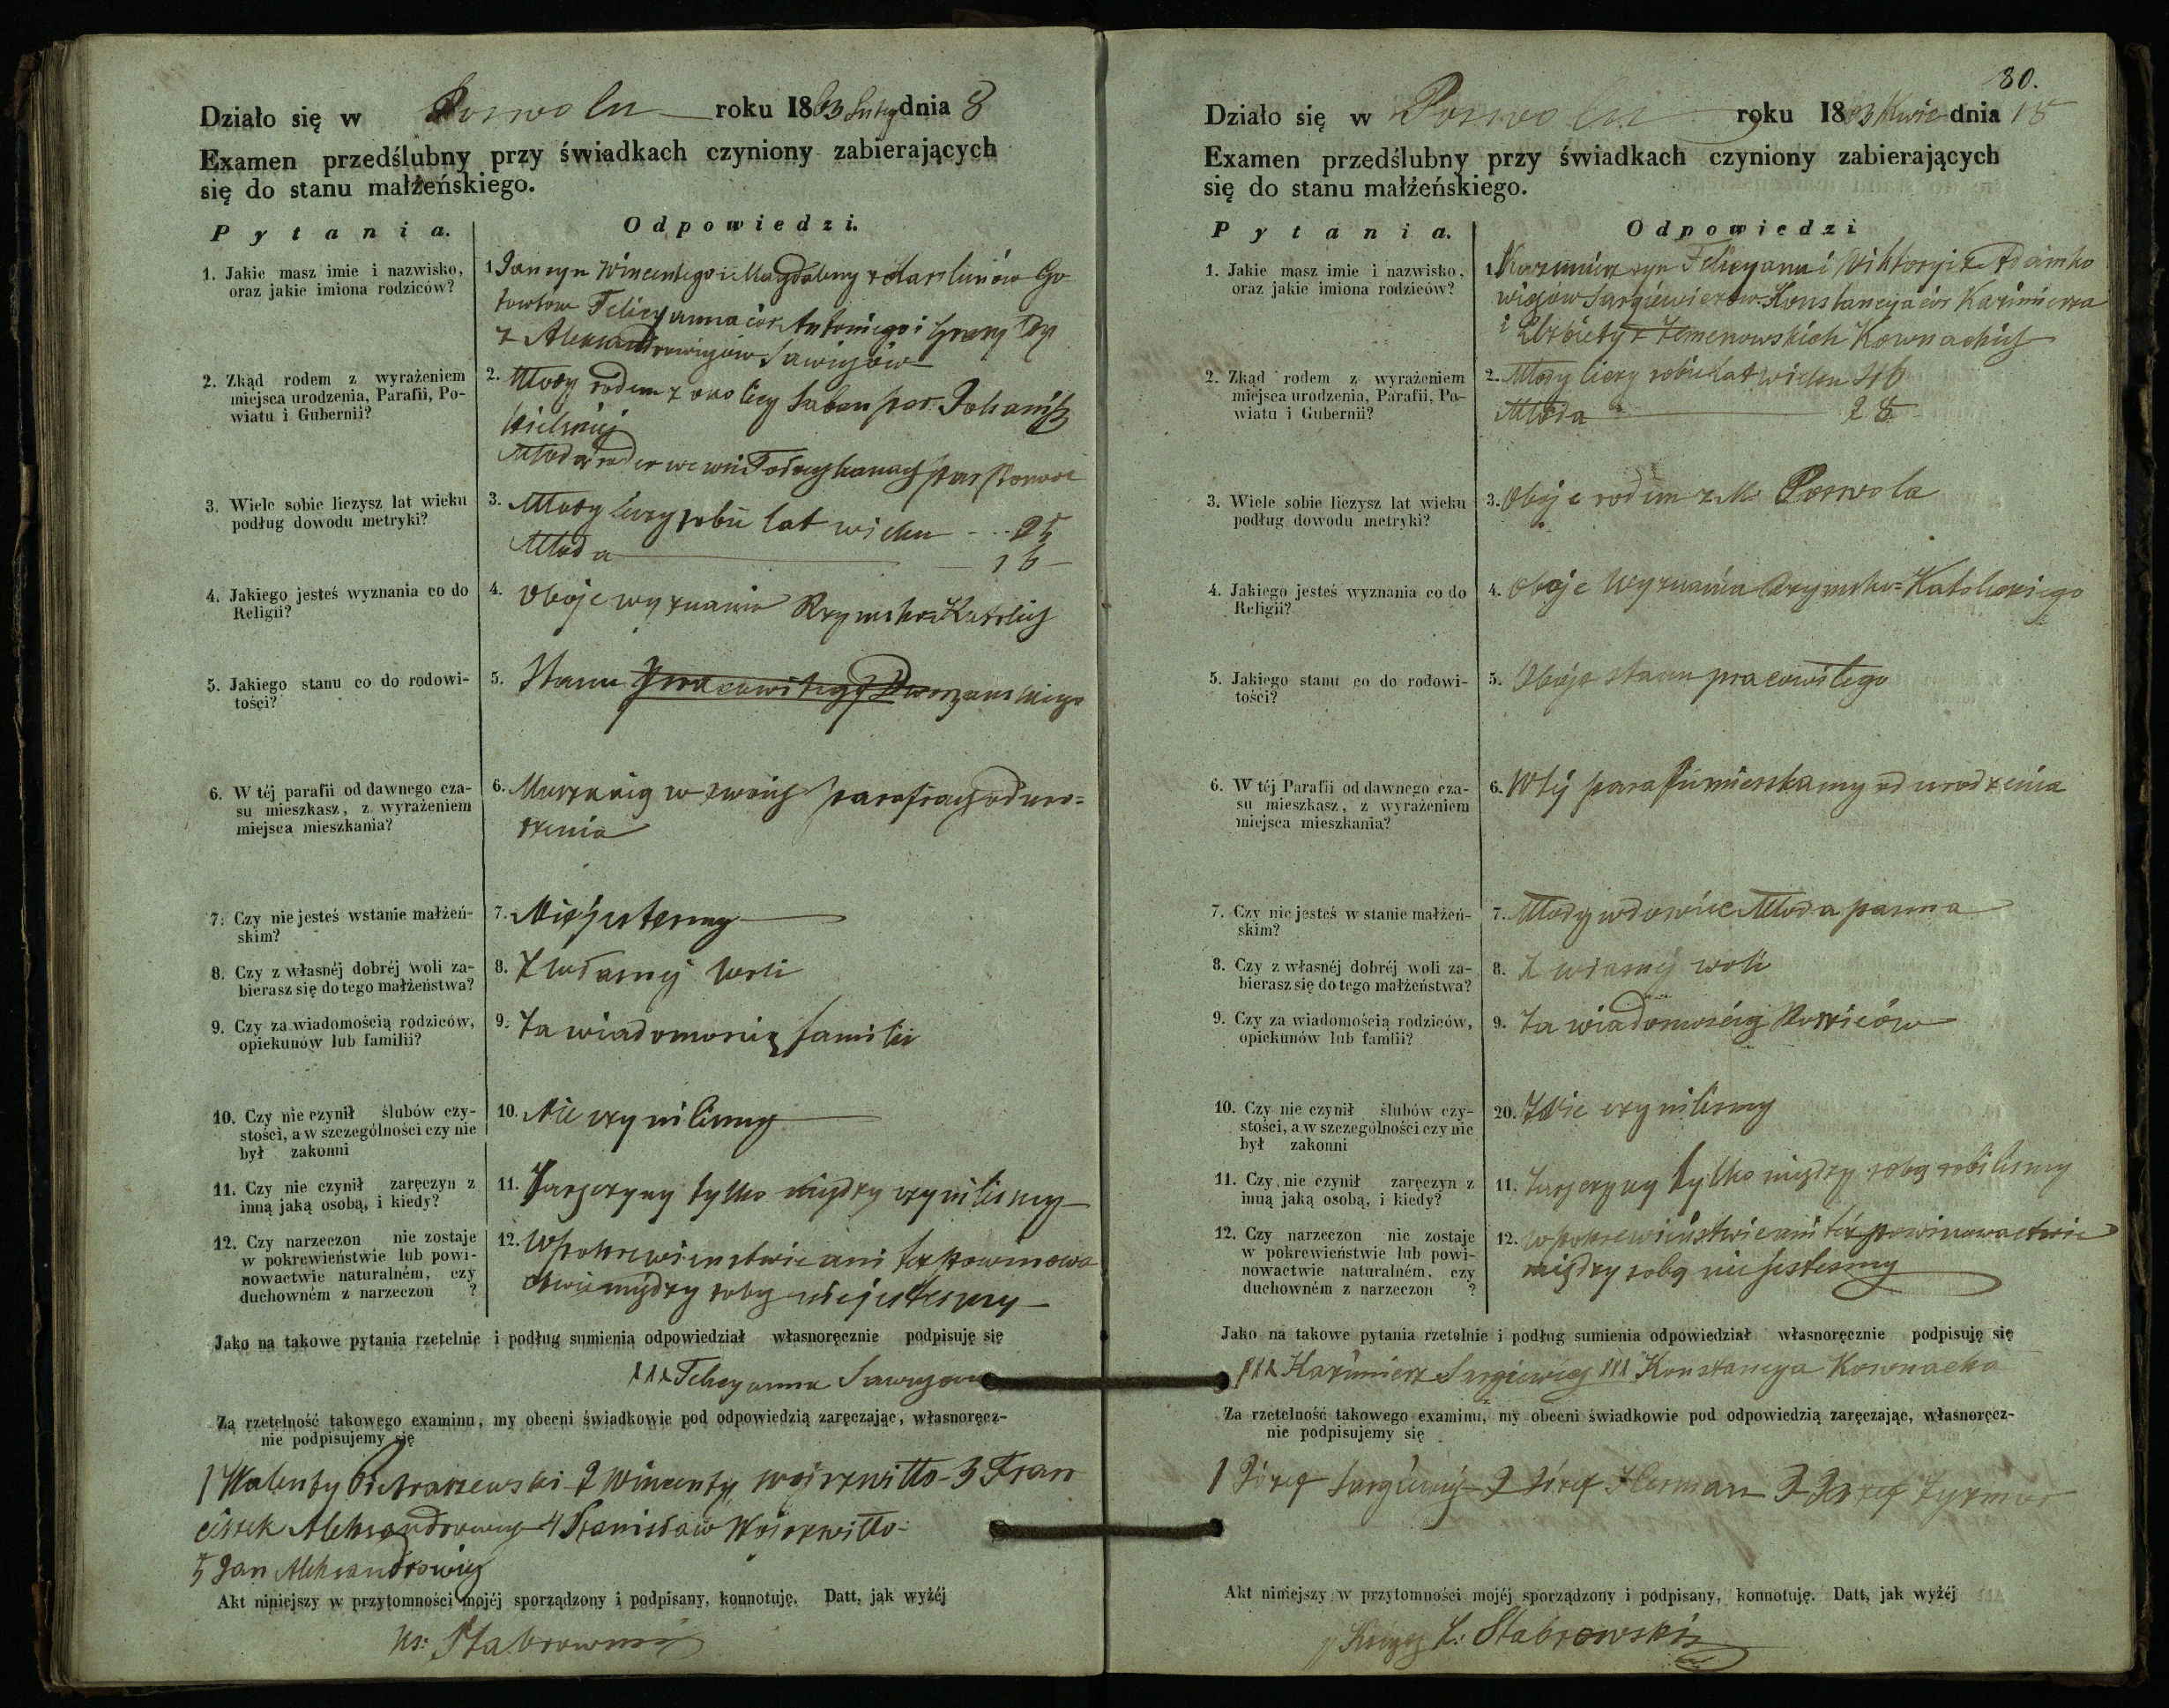 Działo się w Poswolu roku 1863 Luteg dnia 8
Examen przedślubny przy świadkach czyniony zabierających
się do stanu małżeńskiego.
Pytania. Odpowiedzi.
1. Jakie masz imie i nazwisko,
oraz jakie imiona rodziców?
1 Jan syn Wincentego i Magdaleny z
Felicyanna cór Antoniego i
z Aleksandrowiczów Sawiczów
2. Zkąd rodem z wyrażeniem
miejsca urodzenia, Parafii, Po-
wiatu i Gubernii?
2. Młody rodem z okolicy par.
Młoda we wsi par Poswol
3. Wiele sobie liczysz lat wieku
podług dowodu metryki?
3. Młody liczy sobie lat wieku - - - 25
Młoda 16
4. Jakiego jesteś wyznania co do
Religii?
4. Oboje wyznania Rzymsko=Katolic
5. Jakiego stanu co do rodowi-
tości?
5. Stanu pracowitego Dworzanskiego
6. W téj parafii od dawnego cza-
su mieszkasz, z wyrażeniem
miejsca mieszkania?
6. w swoich parafiach od uro=
dzenia
7. Czy nie jesteś wstanie małżeń-
skim?
7. Nie jestesmy
8. Czy z własnéj dobréj woli za-
bierasz się do tego małżeństwa?
8. Z własnej woli
9. Czy za wiadomością rodziców,
opiekunów lub familii?
9. Za wiadomoscią familii
10. Czy nie czynił ślubów czy-
stości, a w szczególności czy nie
był zakonni
10. Nie czynilismy
11. Czy nie czynił zaręczyn z
inną jaką osobą, i kiedy?
11. Zaręczyny tylko między czynilismy
12. Czy narzeczon nie zostaje
w pokrewieństwie lub powi-
nowactwie naturalném, czy
duchowném z narzeczon ?
12. W pokrewienstwie ani też powinowa
ctwie między sobą nie jestesmy
Jako na takowe pytania rzetelnie i podług sumienia odpowiedział własnoręcznie podpisuję się
XXX Felicyanna
Za rzetelność takowego examinu, my obecni świadkowie pod odpowiedzią zaręczając, własnoręcz-
nie podpisujemy się
1 Walenty 2 Wincenty Wojszwiłło 3 Fran
ciszek Aleksandrowicz 4 Stanisław Wojszwiłło
5 Jan Aleksandrowicz
Akt niniejszy w przytomności mojéj sporządzony i podpisany, konnotuję. Datt, jak wyżéj
Ks: Stabrowski
80.
Działo się w Poswolu roku 1863 Kwie dnia 18
Examen przedślubny przy świadkach czyniony zabierających
się do stanu małżeńskiego.
Pytania. Odpowiedzi
1. Jakie masz imie i nazwisko,
oraz jakie imiona rodziców?
1. Kazimierz syn Felicyana i Wiktoryi z Adamko
wiczów Sargiewiczów Konstancya cór Kazimierza
i Elżbiety z Kownackich
2. Zkąd rodem z wyrażeniem
miejsca urodzenia, Parafii, Po-
wiatu i Gubernii?
2. Młody liczy sobie lat wieku 46
Młoda 28
3. Wiele sobie liczysz lat wieku
podług dowodu metryki?
3. Oboje rodem z M. Poswola
4. Jakiego jesteś wyznania co do
Religii?
4. Oboje Wyznania Rzymsko=Katolickiego
5. Jakiego stanu co do rodowi-
tości?
5. Oboje stanu pracowitego
6. W téj Parafii od dawnego cza-
su mieszkasz, z wyrażeniem
miejsca mieszkania?
6. W tej parafii mieszkamy od urodzenia
7. Czy nie jesteś w stanie małżeń-
skim?
7. Młody wdowiec Młoda panna
8. Czy z własnéj dobréj woli za-
bierasz się do tego małżeństwa?
8. Z własnej woli
9. Czy za wiadomością rodziców,
opiekunów lub famlii?
9. Za wiadomością Rodziców
10. Czy nie czynił ślubów czy-
stości, a w szczególności czy nie
był zakonni
20. Nie czynilismy
11. Czy nie czynił zaręczyn z
inną jaką osobą, i kiedy?
11. Zaręczyny tylko między sobą robilismy
12. Czy narzeczon nie zostaje
w pokrewieństwie lub powi-
nowactwie naturalném, czy
duchowném z narzeczon ?
12. W pokrewieństwie ani też powinowactwie
między sobą nie jestesmy
Jako na takowe pytania rzetelnie i podług sumienia odpowiedział własnoręcznie podpisuję się
XXX Kazimierz Sargiewicz XXX Konstancya Kownacka
Za rzetelność takowego examinu, my obecni świadkowie pod odpowiedzią zaręczając, własnoręcz-
nie podpisujemy się
1 Józef Sargiewicz 2 Józef Herman 3 Józef
Akt niniejszy w przytomności mojéj sporządzony i podpisany, konnotuję. Datt, jak wyżéj
Stabrowski